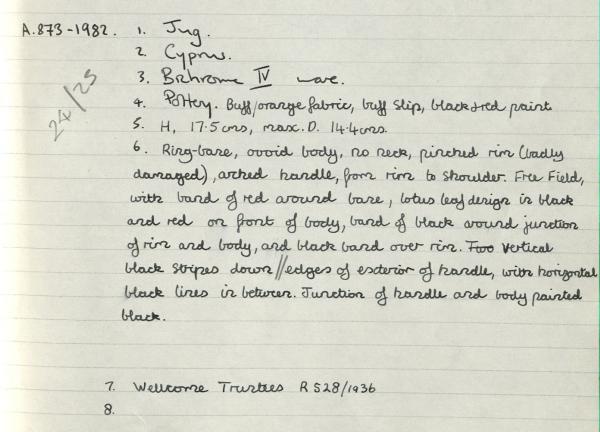 A.873-1982. 1. Jug.
2. Cyprus.
3. Bichrome IV ware.
24/25
4. Pottery. Buff/orange fabric, buff slip, black & red paint
5. H, 17.5 cms, max. D. 14.4 cms.
6. Ring-base, ovoid body, no neck, pinched rim (badly
damaged), arched handle, from rim to shoulder. Free Field,
with band of red around base, lotus leaf design in black
and red on front of body, band of black around junction
of rim and body, and black band over rim. Two vertical
black stripes down // edges of exterior of handle, with horizontal
black lines in between. Junction of handle and body painted
black.
7. Wellcome Trustees R 528/1936
8.